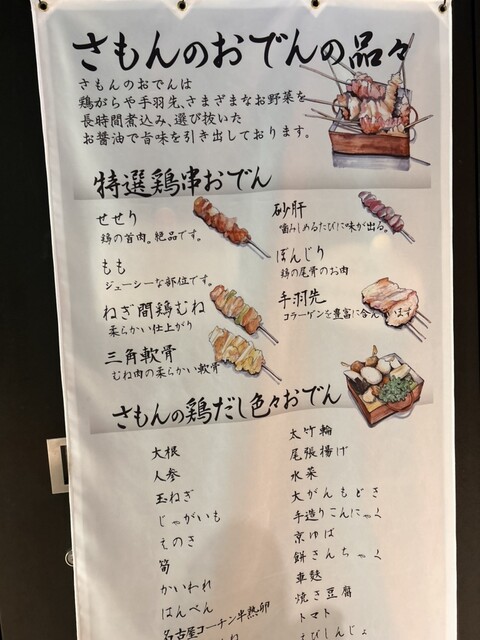 さもんのおでんの品々
さもんのおでんは
鶏がらや手羽先、さまざまなお野菜を
長時間煮込み、選び抜いた
お醤油で旨味を引き出しております。
特選鶏串おでん
せせり
鶏の首肉。絶品です。
もも
ジューシーな部位です。
ねぎ間鶏むね
柔らかい仕上がり
三角軟骨
むね肉の柔らかい軟骨
砂肝
噛みしめるたびに味が出る。
ぼんじり
鶏の尾骨のお肉
手羽先
コラーゲンを豊富に含んでいます
さもんの鶏だし色々おでん
大根
人参
玉ねぎ
じゃがいも
えのき
筍
かいわれ
はんぺん
名古屋コーチン半熟卵
太竹輪
尾張揚げ
水菜
大がんもどき
手造りこんにゃく
京ゆば
餅きんちゃく
車麩
焼き豆腐
トマト
えびしんじょ